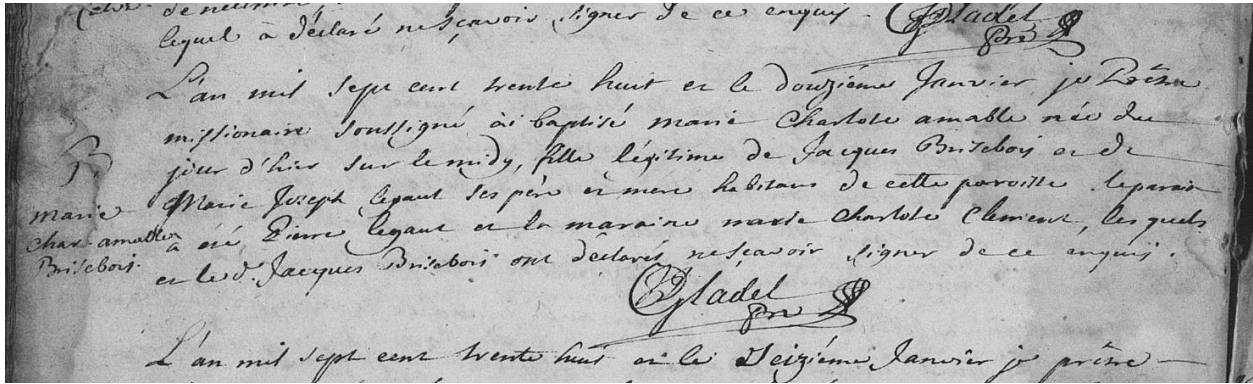 de
lequel à déclaré ne sçavoir signer de ce enquis. Gladel
Prê
L'an mil sept cent trente huit et le douziéme Janvier je Prêtre
missionaire soussigné ai baptisé marie Charlote amable née du
B. jour d'hier sur le midy, fille légitime de Jacques Brisebois et de
marie Marie Joseph legaut ses père et mere habitans de cette paroisse. le parain
char. amable à été Pierre legaut et la maraine marie Charlote Clement, les quels
Brisebois. et le d. Jacques Brisebois ont déclarés ne sçavoir signer de ce enquis.
Gladel
Pre
L'an mil sept cent trente huit et le Seiziéme Janvier je prêtre